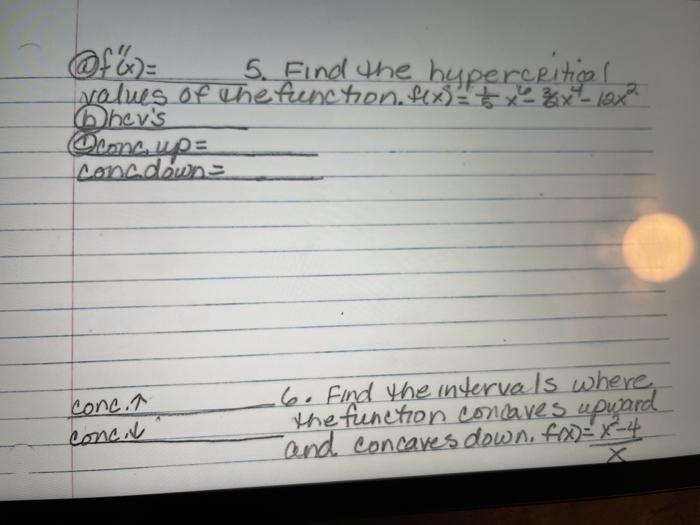 ⓐ f''(x)= 5. Find the hypercritical
values of the function. f(x)= x⁶- x⁴-12x²
ⓑ hcv's
ⓒ conc. up=
conc down=
conc.↑ 6. Find the intervals where
the function concaves upward
conc.↓ and concaves down. f(x)= x²-4
x